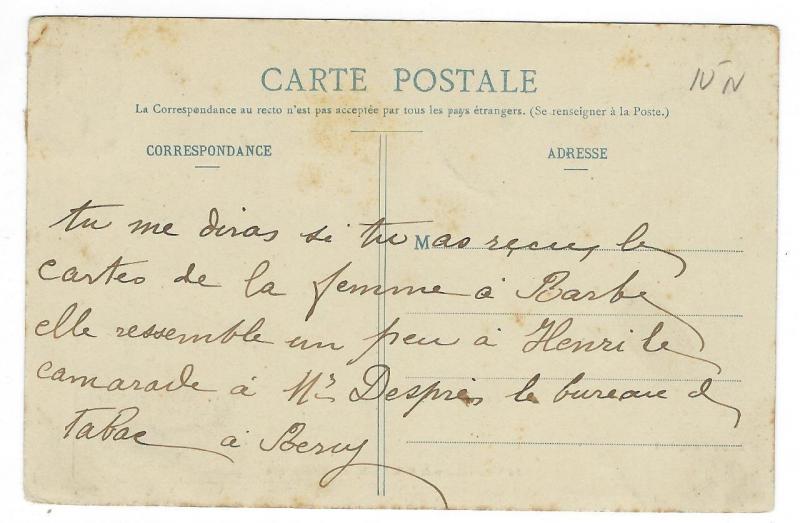 CARTE POSTALE
La Correspondance au recto n'est pas acceptée par tous les pays étrangers. (Se renseigner à la Poste.)
CORRESPONDANCE
ADRESSE
M
tu me diras si tu as reçu le
cartes de la femme à Barbe
elle ressemble un peu à Henri le
camarade à Mr Després le bureau d
Tabac à Bercy